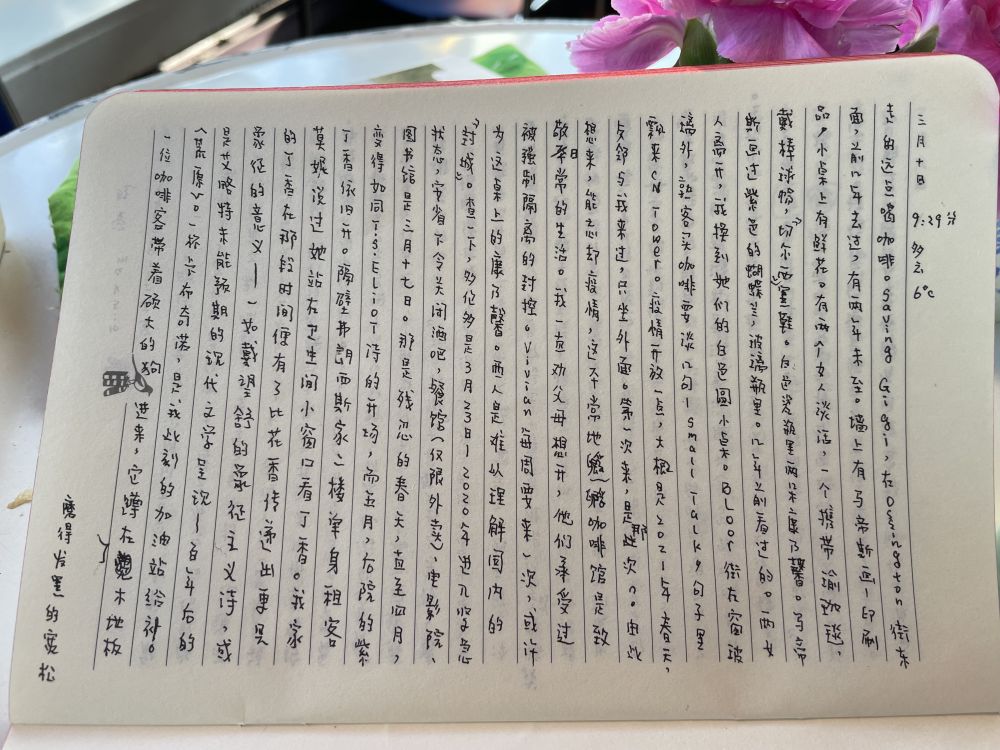 三月十日 9:29分 多云 6°C
走的远点喝咖啡。Saving Gigi,在Ossington街东
面,前几年去过,有两年未至。墙上有马帝斯画-印刷
品,小桌上有鲜花。有两个女人谈话,一个携带瑜珈毯,
戴棒球帽,“切尔西”靴鞋。白瓷瓶里两朵康乃馨。马帝
斯画过紫色的蝴蝶兰,玻璃瓶里。几年前看过的。两女
人离开,我换到她们的白色圆小桌。BLoor街左窗玻
璃外,熟客买咖啡要谈几句-small Talk,句子里
飘来CN Tower。疫情开放一点,大概是2021年春天,
友邻与我来过,只坐外面。第一次来,是那次?。由此
想来,能忘却疫情,这不常地咖啡馆是致
敬日常的生活。我一直劝父母想开,他们承受过
被强制隔离的封控。Vivian每周要来一次,或许
为这桌上的康乃馨。西人是难以理解国内的
“封城”。查一下,多伦多是3月23日-2020年进入紧急
状态,安省下令关闭酒吧,餐馆(仅限外卖),电影院、
图书馆是三月十七日。那是残忍的春天,直至四月,
变得如同T.S.ELIOT诗的开场,而五月,后院的紫
丁香依旧开。隔壁弗朗西斯家二楼单身租客
莫妮说过她站在卫生间小窗口看丁香。我家
的丁香在那段时间便有了比花香传递出更具
象征的意义-一如戴望舒的象征主义诗,或
是艾略特未能预期的现代文学呈现-百年后的
《荒原》。一杯卡布奇诺,是我此刻的加油站给补。
一位咖啡客带着硕大的狗进来,它蹲在木地板
了
磨得发黑的宽松